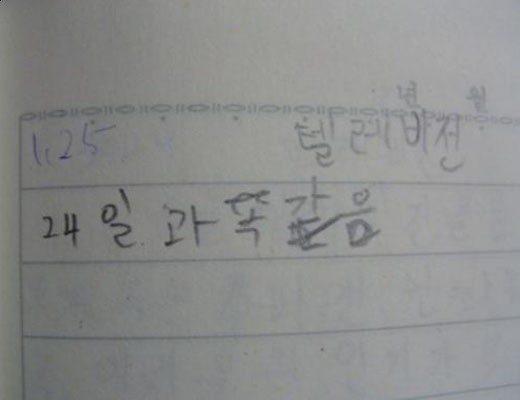 년 월
1.25 텔레비전
24일 과 똑같음